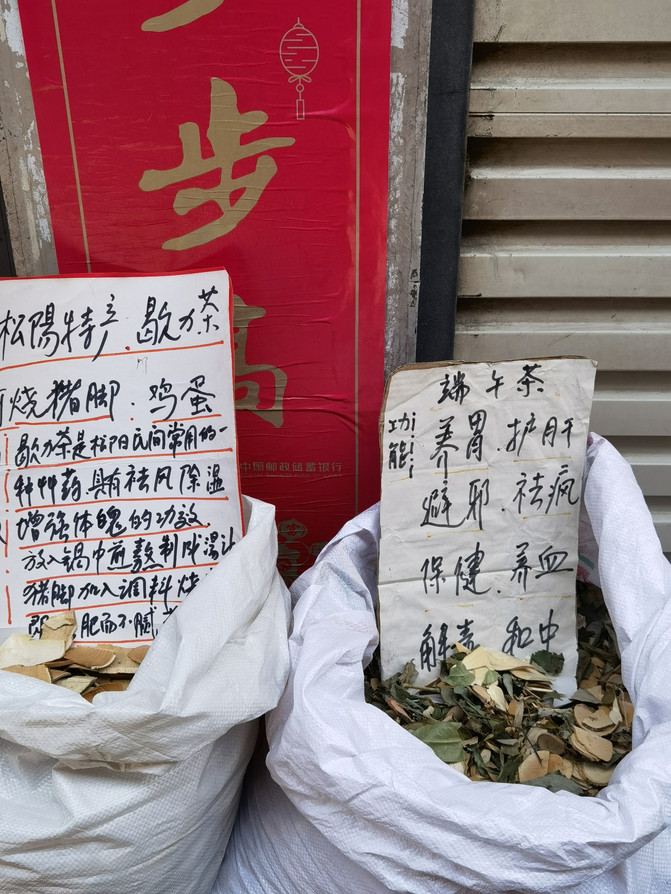 步
高
中国邮政储蓄银行
松陽特产.歇力茶
烧猪脚.鸡蛋
歇力茶是松阳民间常用的一
种艸药.具有祛风除湿
增强体魄的功效.
放入锅中煎熬制成汤汁
猪脚加入调料烧
即 肥而不腻,
端午茶
功能
养胃.护肝
避邪.祛疯
保健.养血
解毒.和中